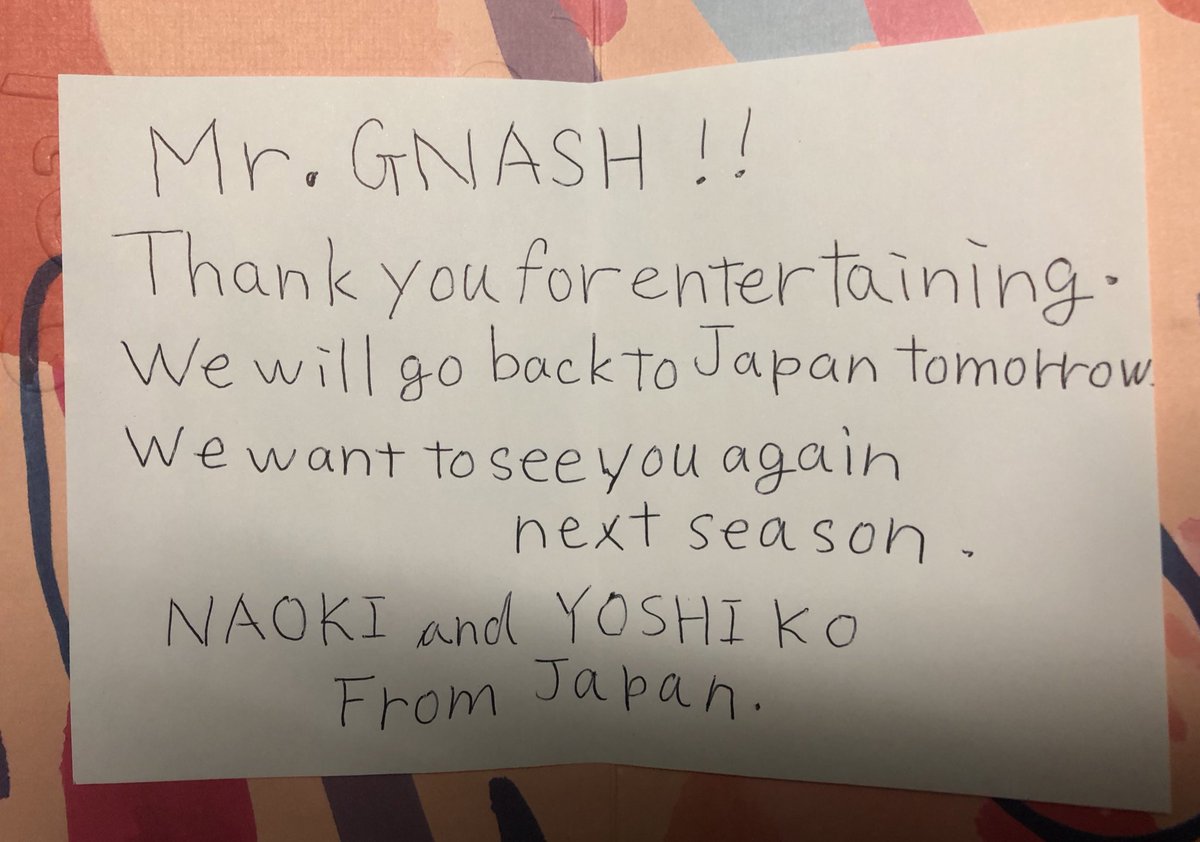 Mr. GNASH !!
Thank you for entertaining.
We will go back to Japan tomorrow.
We want to see you again
next season.
NAOKI and YOSHIKO
From Japan.